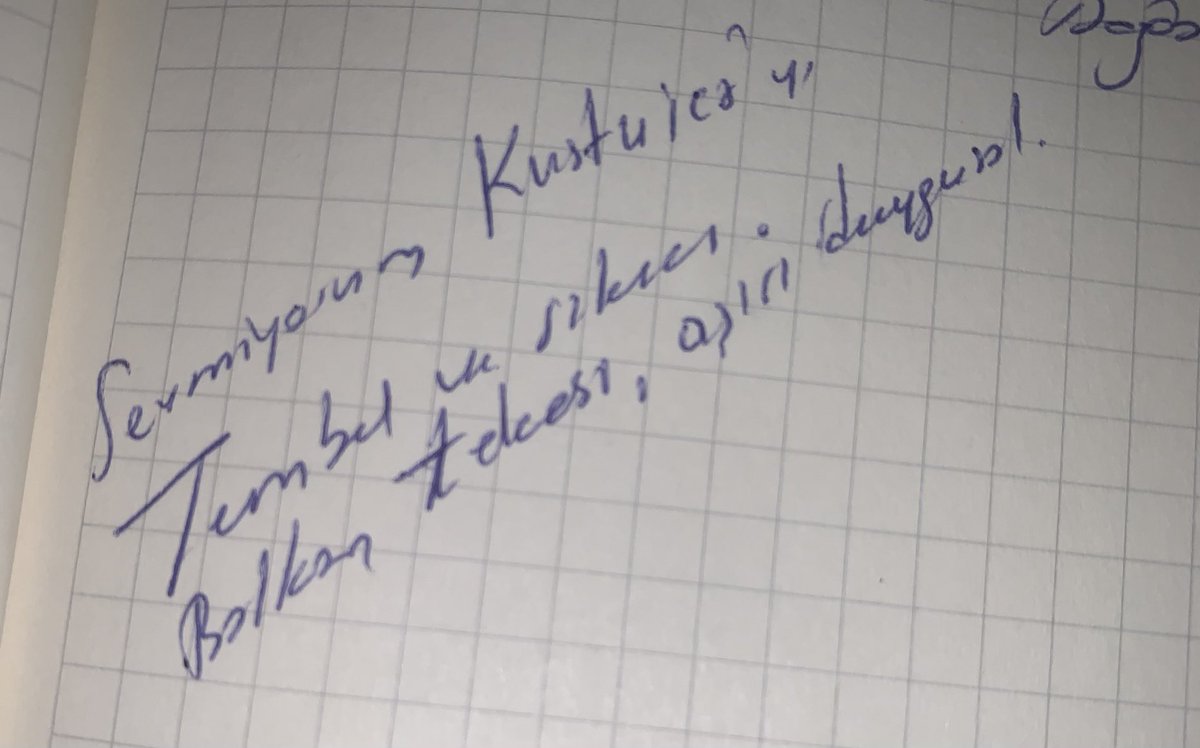 Sevmiyorum Kusturica'yı
Tembel ve sıkıcı.
Balkan tekkesi, aşırı duygusal.